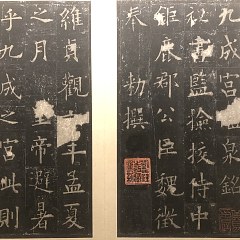 九成宮泉銘
秘書監撿挍侍中
鉅鹿郡公臣魏徵
奉勑撰
維貞觀年孟夏
之月帝避暑
乎九成之宮此則